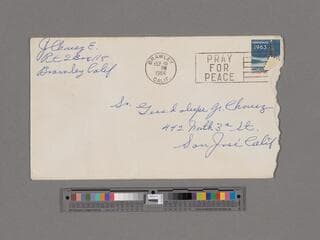 J Chavez E.
Rt 2 Box 115
Brawley Calif
BRAWLEY
PM
1964
CALIF.
PRAY
FOR
PEACE
1963
Sr. Guadalupe Jr. Chavez
442 North 3rd St.
San José Calif